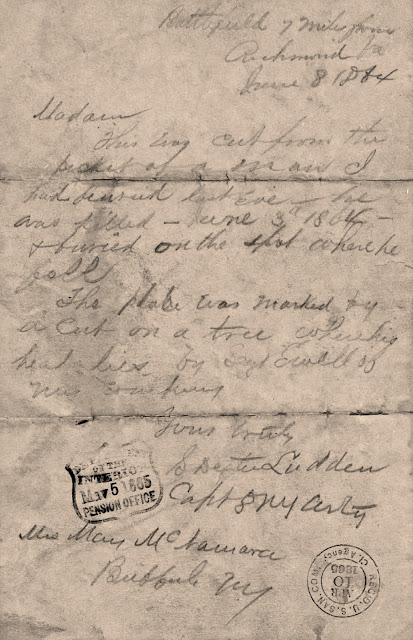 Battlefield 7 miles from
Richmond Va
June 8 1864
Madam
This was cut from the
pocket of a man I
had buried last eve - he
was killed - June 3d 1864 -
& buried on the spot where he
fell
The place was marked by
a cut on a tree where his
head lies by
my company
Yours truly
S Dexter Ludden
Capt 8 NY Arty
Mrs Mary McNamara
Buffalo NY
OF THE
INTERIOR
MAY 5 1865
PENSION OFFICE
REC'D. U.S. SAN. COM. Cl. Agency
APR
10
1865